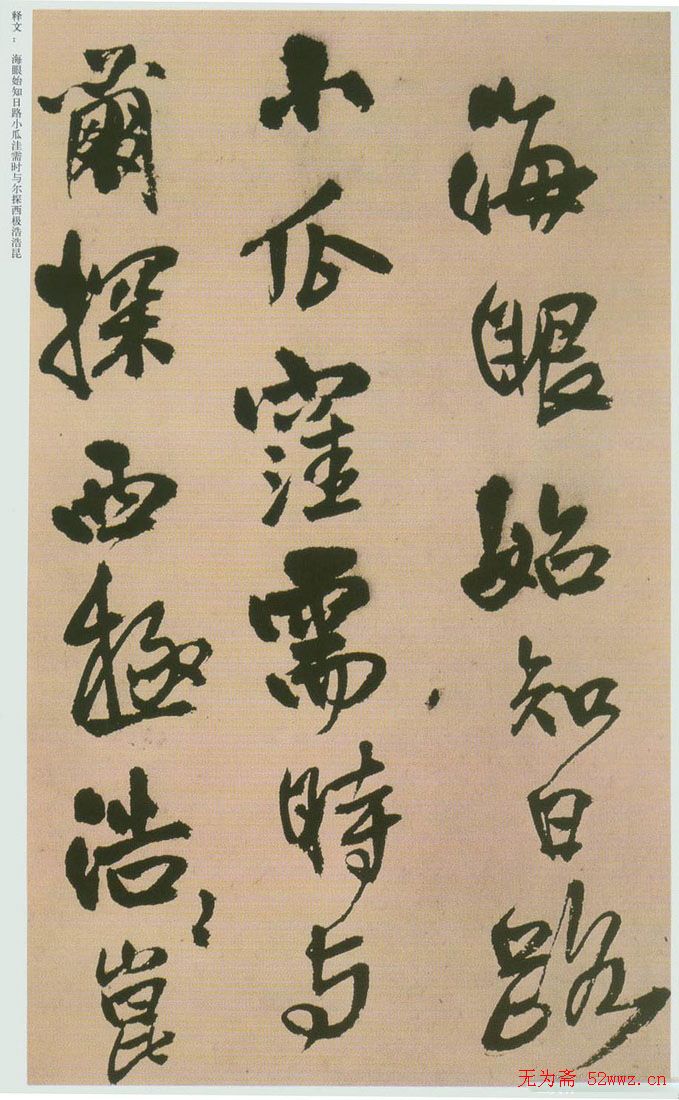 海眼始知日路
小瓜窪需時与
爾探西極浩〻崑
释文：海眼始知日路小瓜洼需时与尔探西极浩浩昆
无为斋 52wwz.cn